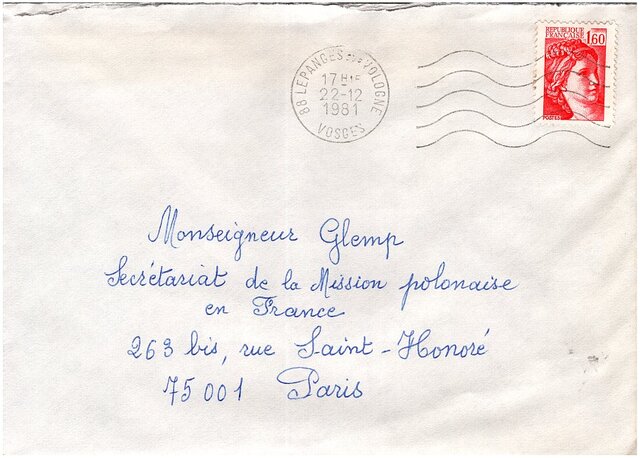 REPUBLIQUE
FRANÇAISE 1,60
POSTES
88 LEPANGES sur VOLOGNE
17 H 15
22-12
1981
VOSGES
Monseigneur Glemp
Secrétariat de la Mission polonaise
en France
263 bis, rue Saint-Honoré
75001 Paris